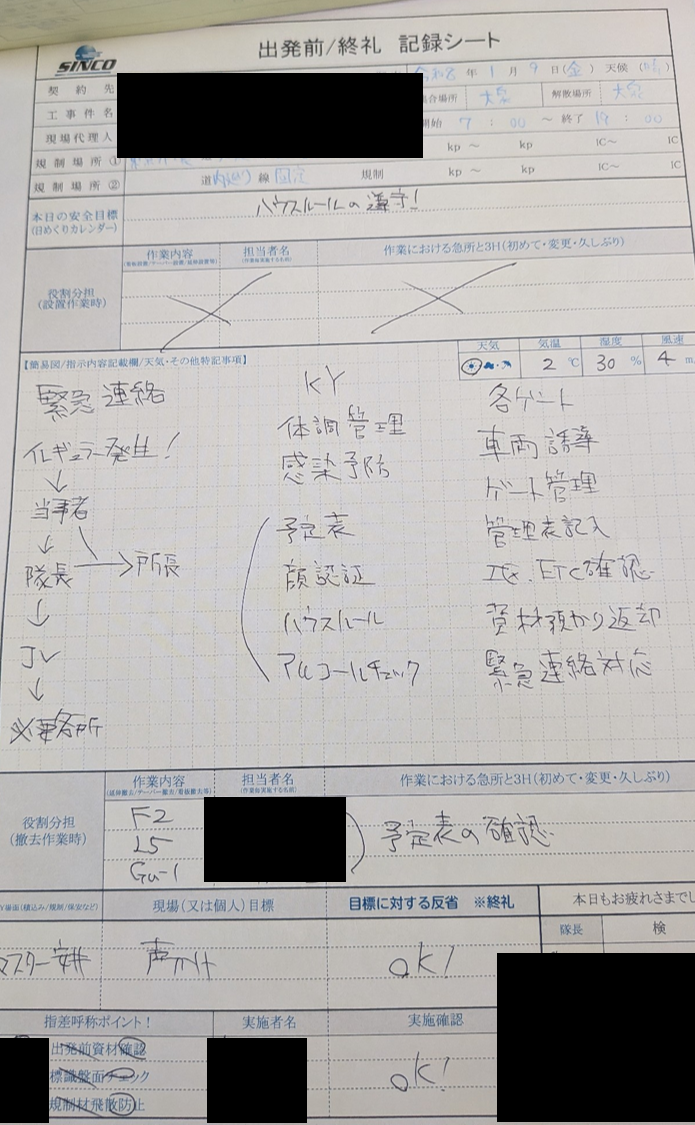 出発前/終礼 記録シート
SINCO
令和8年1月9日(金) 天候(晴)
契約先
工事件名
集合場所 大泉 解散場所 大泉
現場代理人
開始 7:00 ~ 終了 19:00
規制場所①
kp ~ kp IC~ IC
規制場所②
道 内回り 線 固定 規制 kp ~ kp IC~ IC
本日の安全目標
(日めくりカレンダー)
ハウスルールの遵守!
役割分担
(設置作業時)
作業内容
担当者名
作業における急所と3H(初めて・変更・久しぶり)
【簡易図/指示内容記載欄/天気・その他特記事項】
天気 気温 湿度 風速
2 ℃ 30 % 4 m
緊急連絡
イレギュラー発生!
↓
当事者
↓
隊長 → 所長
↓
JV
↓
※事務所
KY
体調管理
感染予防
予定表
顔認証
ハウスルール
アルコールチェック
各ゲート
車両誘導
ゲート管理
管理表記入
ETC確認
資材預かり返却
緊急連絡対応
役割分担
(撤去作業時)
作業内容
担当者名
作業における急所と3H(初めて・変更・久しぶり)
F2
L5
Gu-1
予定表の確認
Y場面(積込み/規制/保安など)
現場(又は個人)目標
目標に対する反省 ※終礼
本日もお疲れさまでし
隊長 検
声かけ
OK!
指差呼称ポイント!
実施者名
実施確認
出発前資材確認
標識盤面チェック
規制材飛散防止
OK!